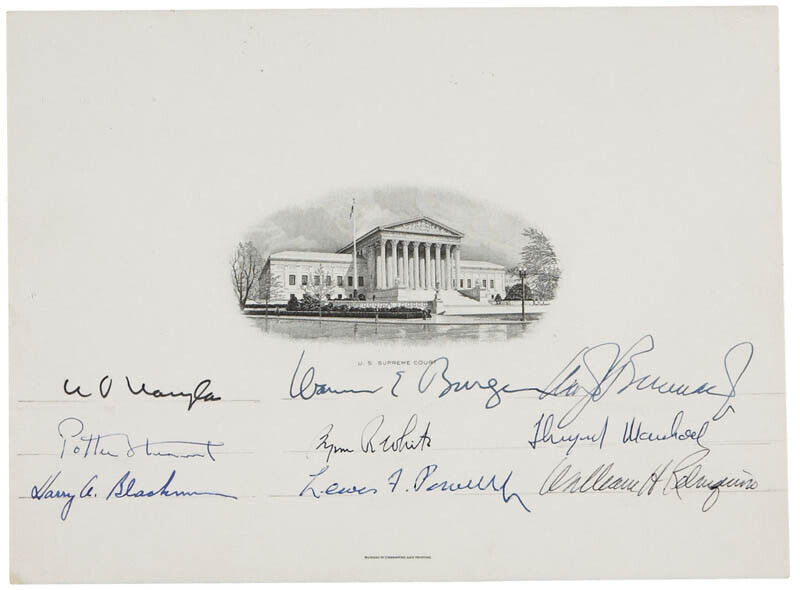 U. S. SUPREME COURT
Wm O Douglas Warren E Burger Wm J Brennan Jr
Potter Stewart Byron R White Thurgood Marshall
Harry A. Blackmun Lewis F. Powell Jr William H Rehnquist
BUREAU OF ENGRAVING AND PRINTING